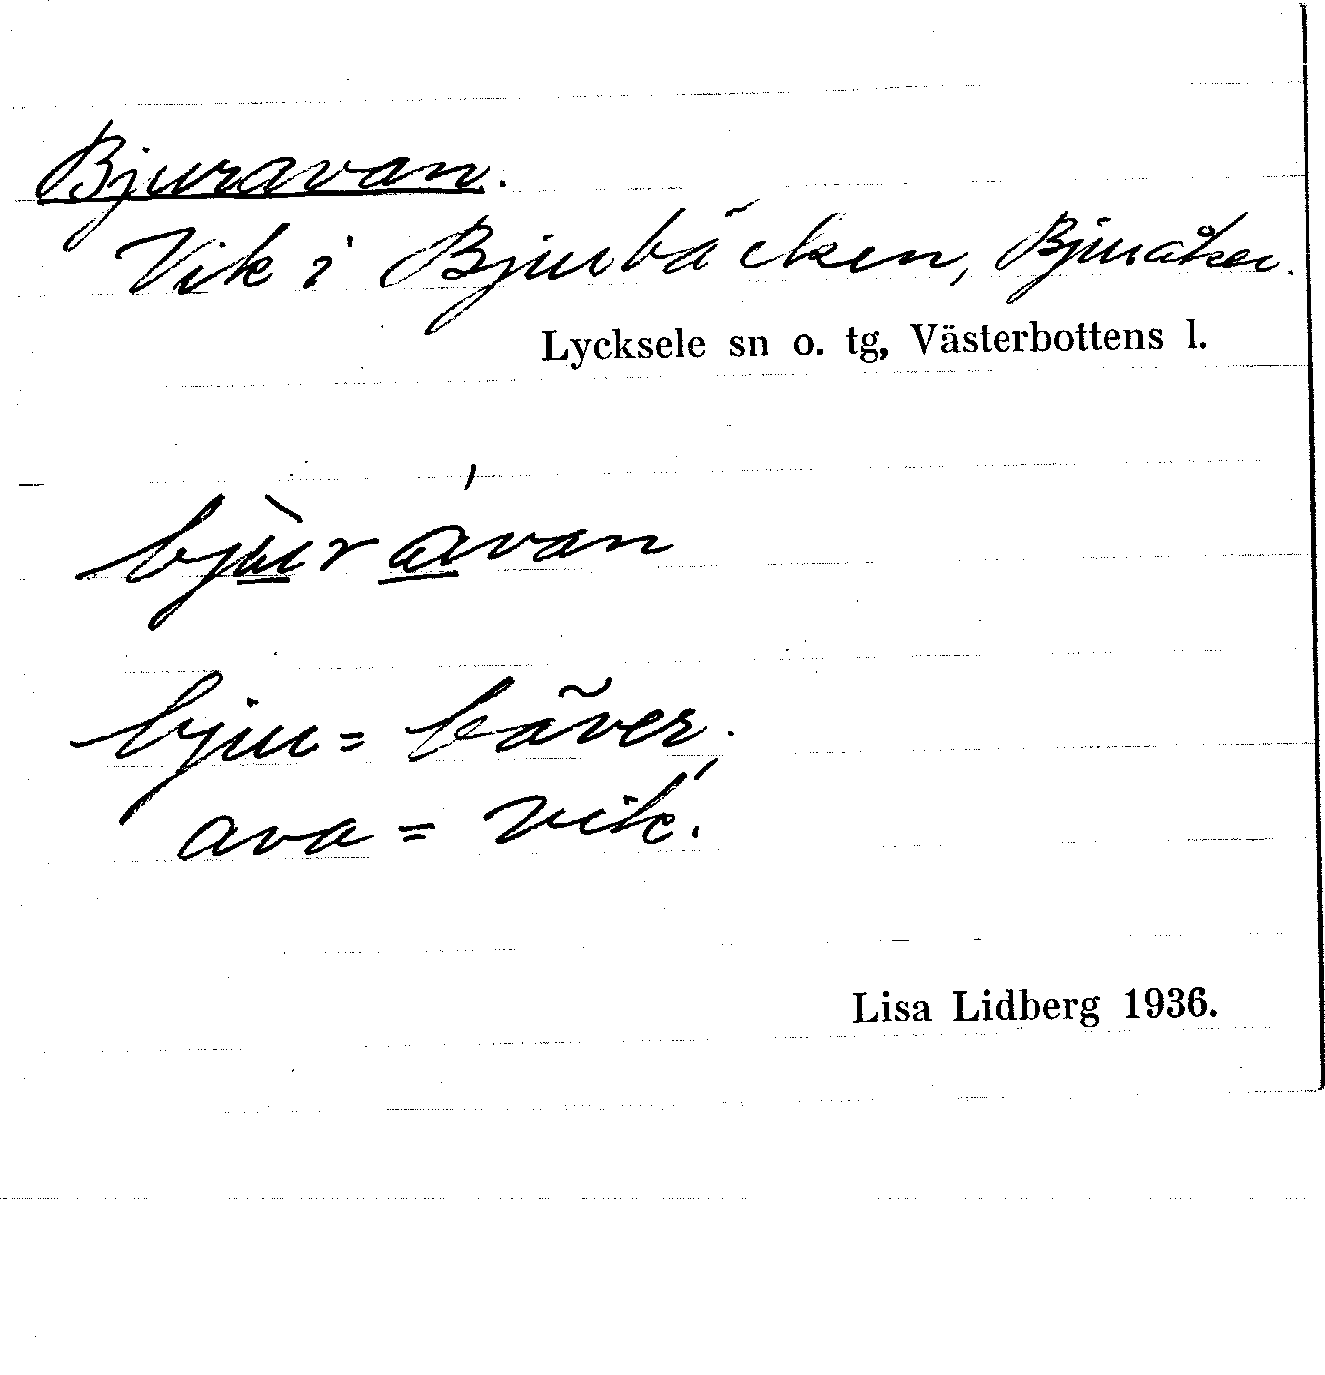 Bjuravan.
Vik i Bjurbäcken, Bjuråker.
Lycksele sn o. tg, Västerbottens l.
bjùrávan
bjur = bäver.
ava = vik.
Lisa Lidberg 1936.